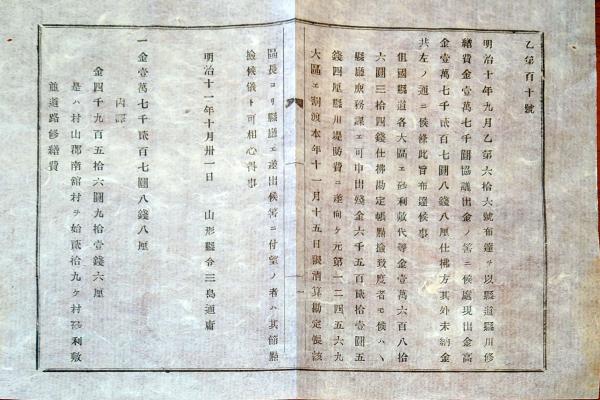 乙第百十號
明治十年九月乙第六拾六號布達ヲ以縣道縣川修
繕費金壹萬七千圓協議出金ノ筈ニ候處現出金高
金壹萬七千貳百七圓八錢八厘仕拂方其外未納金
共左ノ通ニ候條此旨布達候事
但國縣道各大區エ砂利敷代等金壹萬六百八拾
六圓三拾四錢仕拂勘定帳點撿致度者モ候ハヽ
縣廳庶務課エ可申出殘金六千五百貳拾壹圓五
錢四厘縣川堤防費ニ差向ケ元第一二四五六九
大區エ割渡本年十一月十五日限淸算勘定帳該
區長ヨリ縣廳エ差出候筈ニ付望ノ者ハ其節點
撿候儀ト可相心得事
明治十一年十月卅一日　山形縣令三島通庸
一金壹萬七千貳百七圓八錢八厘
內譯
金四千九百五拾六圓九拾壹錢六厘
是ハ村山郡南舘村ヲ始貳拾九ケ村砂利敷
並道路修繕費